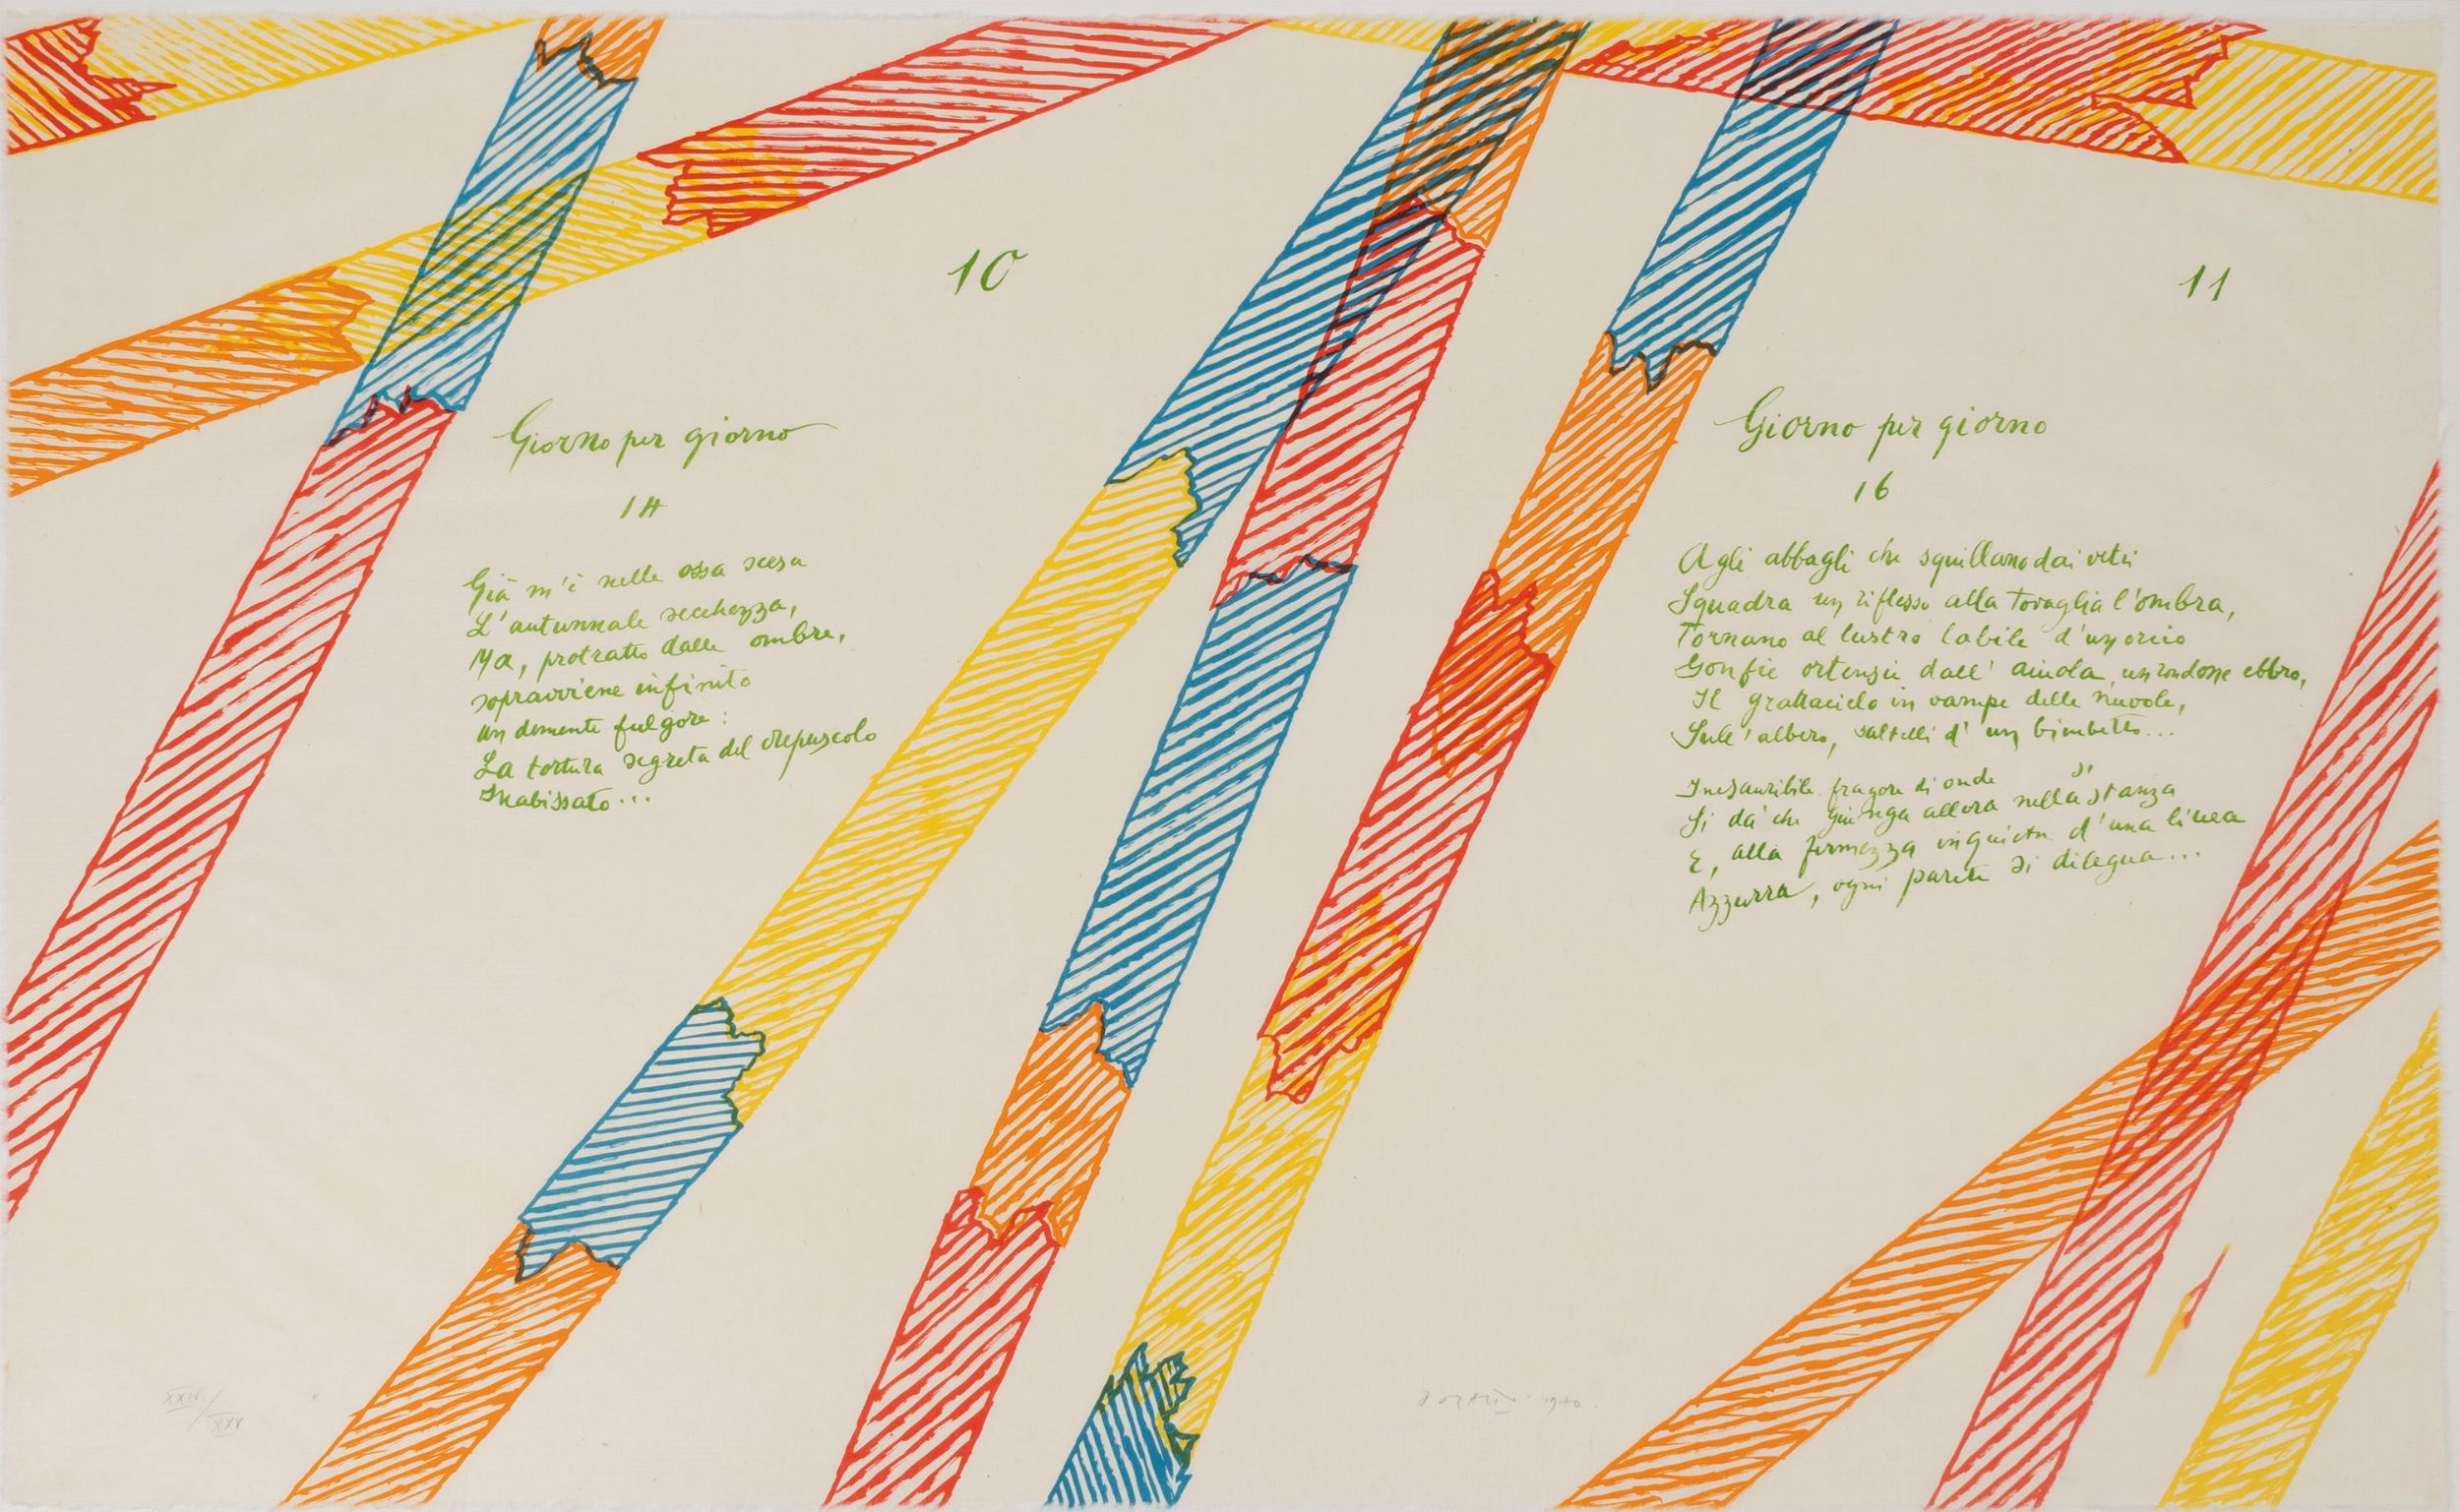 10
Giorno per giorno
14
Già m'è nelle ossa scesa
L'autunnale secchezza,
Ma, protratto dalle ombre,
sopravviene infinito
un demente fulgore:
La tortura segreta del crepuscolo
Inabissato...
11
Giorno per giorno
16
Agli abbagli che squillano dai vetri
Squadra un riflesso alla tovaglia l'ombra,
Tornano al lustro labile d'un orcio
Gonfie ortensie dall'aiuola, un rondone ebbro,
Il grattacielo in vampe delle nuvole,
Sull'albero, saltelli d'un bimbetto...
Inesauribile fragore di onde
Si dà che giunga allora nella stanza
E, alla fermezza inquieta d'una linea
Azzurra, ogni parete si dilegua...
XXIV/XXV
1980